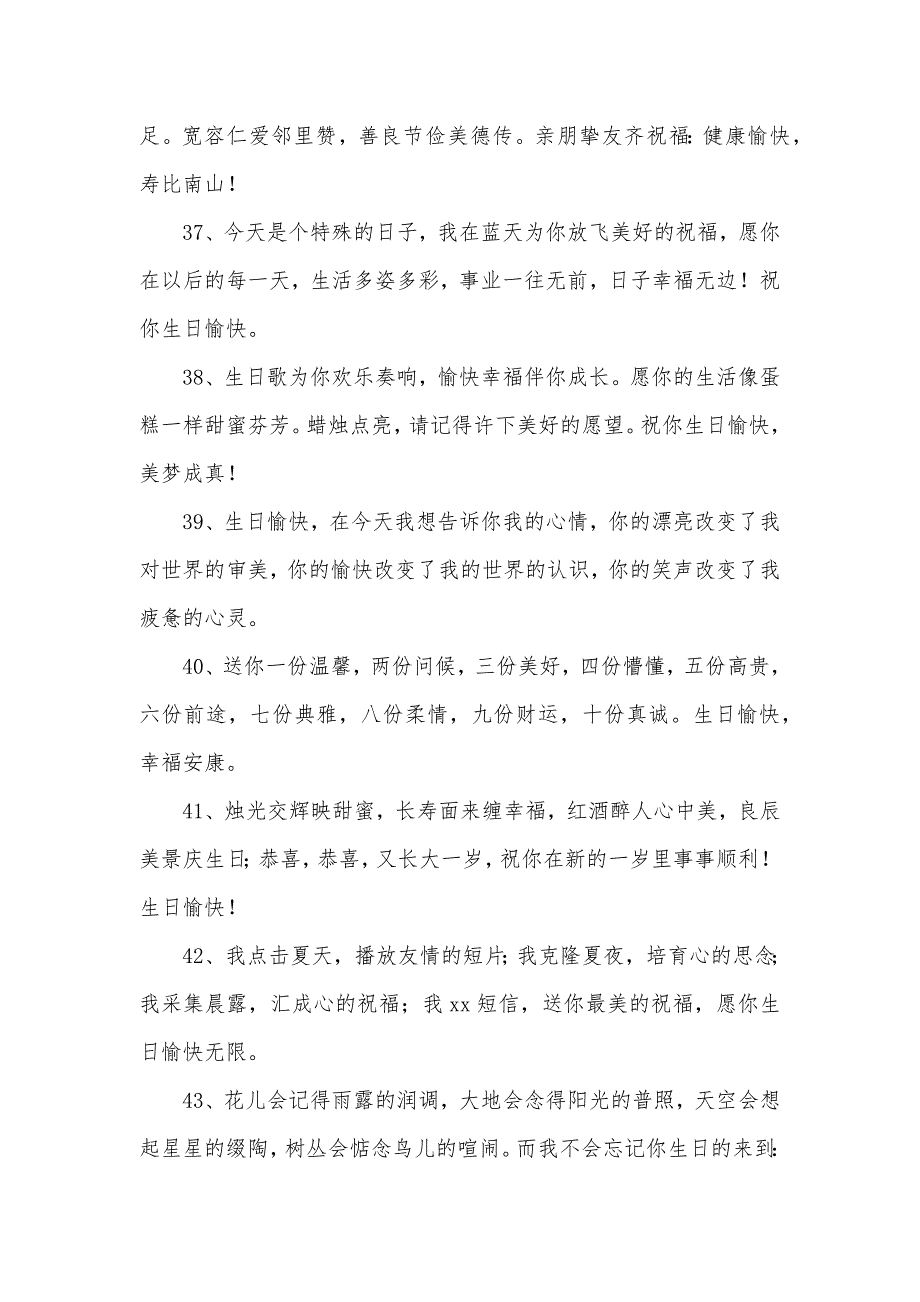 足。宽容仁爱邻里赞，善良节俭美德传。亲朋挚友齐祝福：健康愉快，
寿比南山！
37、今天是个特殊的日子，我在蓝天为你放飞美好的祝福，愿你
在以后的每一天，生活多姿多彩，事业一往无前，日子幸福无边！祝
你生日愉快。
38、生日歌为你欢乐奏响，愉快幸福伴你成长。愿你的生活像蛋
糕一样甜蜜芬芳。蜡烛点亮，请记得许下美好的愿望。祝你生日愉快，
美梦成真！
39、生日愉快，在今天我想告诉你我的心情，你的漂亮改变了我
对世界的审美，你的愉快改变了我的世界的认识，你的笑声改变了我
疲惫的心灵。
40、送你一份温馨，两份问候，三份美好，四份懵懂，五份高贵，
六份前途，七份典雅，八份柔情，九份财运，十份真诚。生日愉快，
幸福安康。
41、烛光交辉映甜蜜，长寿面来缠幸福，红酒醉人心中美，良辰
美景庆生日；恭喜，恭喜，又长大一岁，祝你在新的一岁里事事顺利！
生日愉快！
42、我点击夏天，播放友情的短片；我克隆夏夜，培育心的思念；
我采集晨露，汇成心的祝福；我 xx 短信，送你最美的祝福，愿你生
日愉快无限。
43、花儿会记得雨露的润调，大地会念得阳光的普照，天空会想
起星星的缀陶，树丛会惦念鸟儿的喧闹。而我不会忘记你生日的来到：